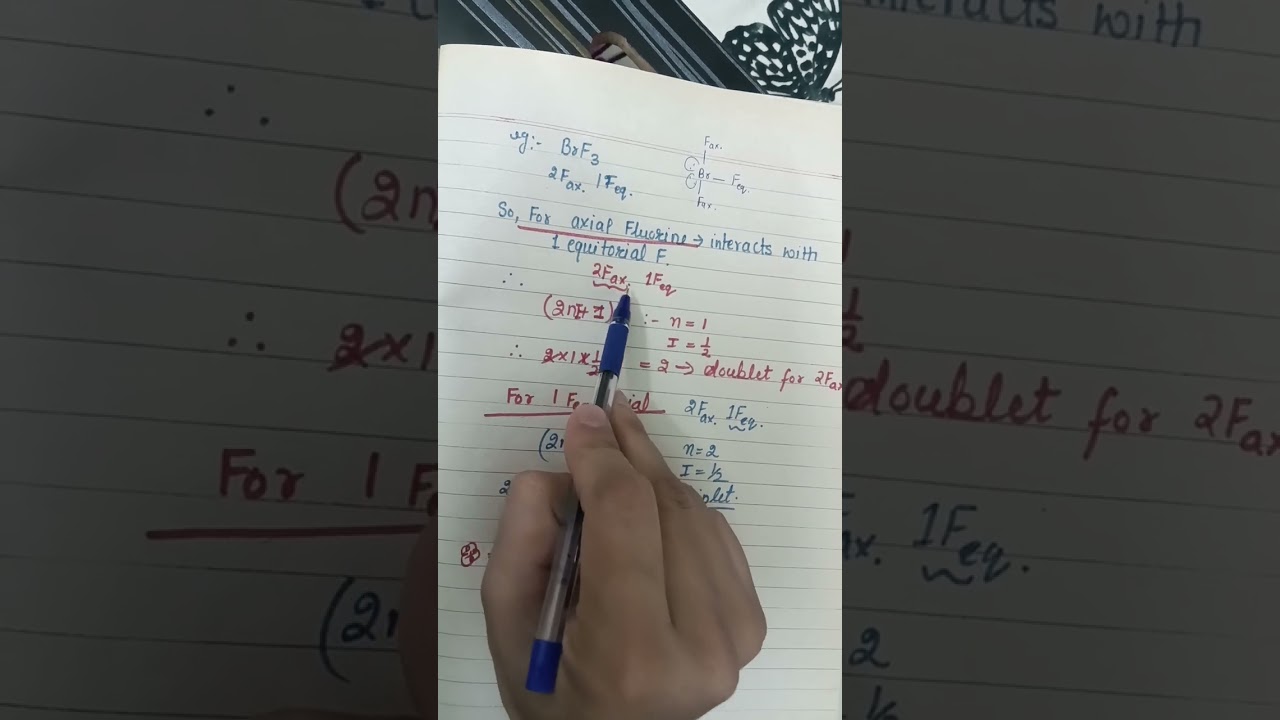 eg:- BrF3
Fax.
Br — Feq.
Fax.
2Fax. 1Feq.
So, For axial Fluorine → interacts with
1 equitorial F.
∴ 2Fax. 1Feq
(2nI+1) :- n=1
I = 1/2
∴ 2×1×1/2 = 2 → doublet for 2Fax
For 1 2Fax. 1Feq.
n=2
I = 1/2